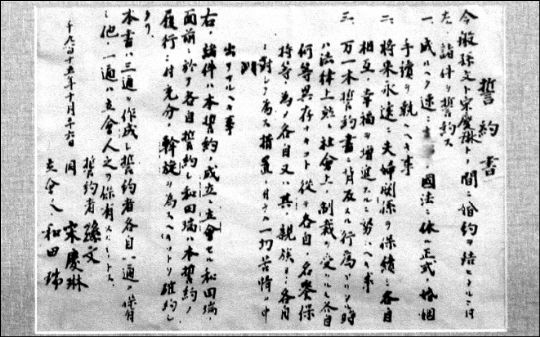 誓約書
今般孫文ト宋慶琳トノ間ニ婚約ヲ結ヒタルニ付
左ノ諸件ヲ誓約ス
一、成ルヘク速ニ 國法ニ依ル正式ノ婚姻
手續ヲ執ルヘキ事
二、将来永遠ニ夫婦関係ヲ保続シ各自
相互ノ幸福ヲ増進スルニ努ムヘキ事
三、万一本誓約書ニ背反スル行為アリタル時
ハ法律上竝ニ社会上ノ制裁ヲ受クルモ各自
何等異存ナキコト従テ各自ノ名誉保
持等ノ為メ各自又ハ其ノ親族ヨリ各自
ニ対シテ為ス措置ニ付テハ一切苦情ヲ申
出テサルヘキ事
右ノ諸件ハ本誓約ノ成立ニ立會セル和田瑞ノ
面前ニ於テ各自誓約シ和田瑞ハ本誓約ノ
履行ニ付充分ノ斡旋ヲ為スヘキコトヲ確約シ
タリ
本書ハ三通ヲ作成シ誓約者各自ハ一通ヲ保有
シ他ノ一通ハ立會人之ヲ保有スルモノトス
千九百十五年十月二十六日
誓約者 孫文
同 宋慶琳
立會人 和田瑞